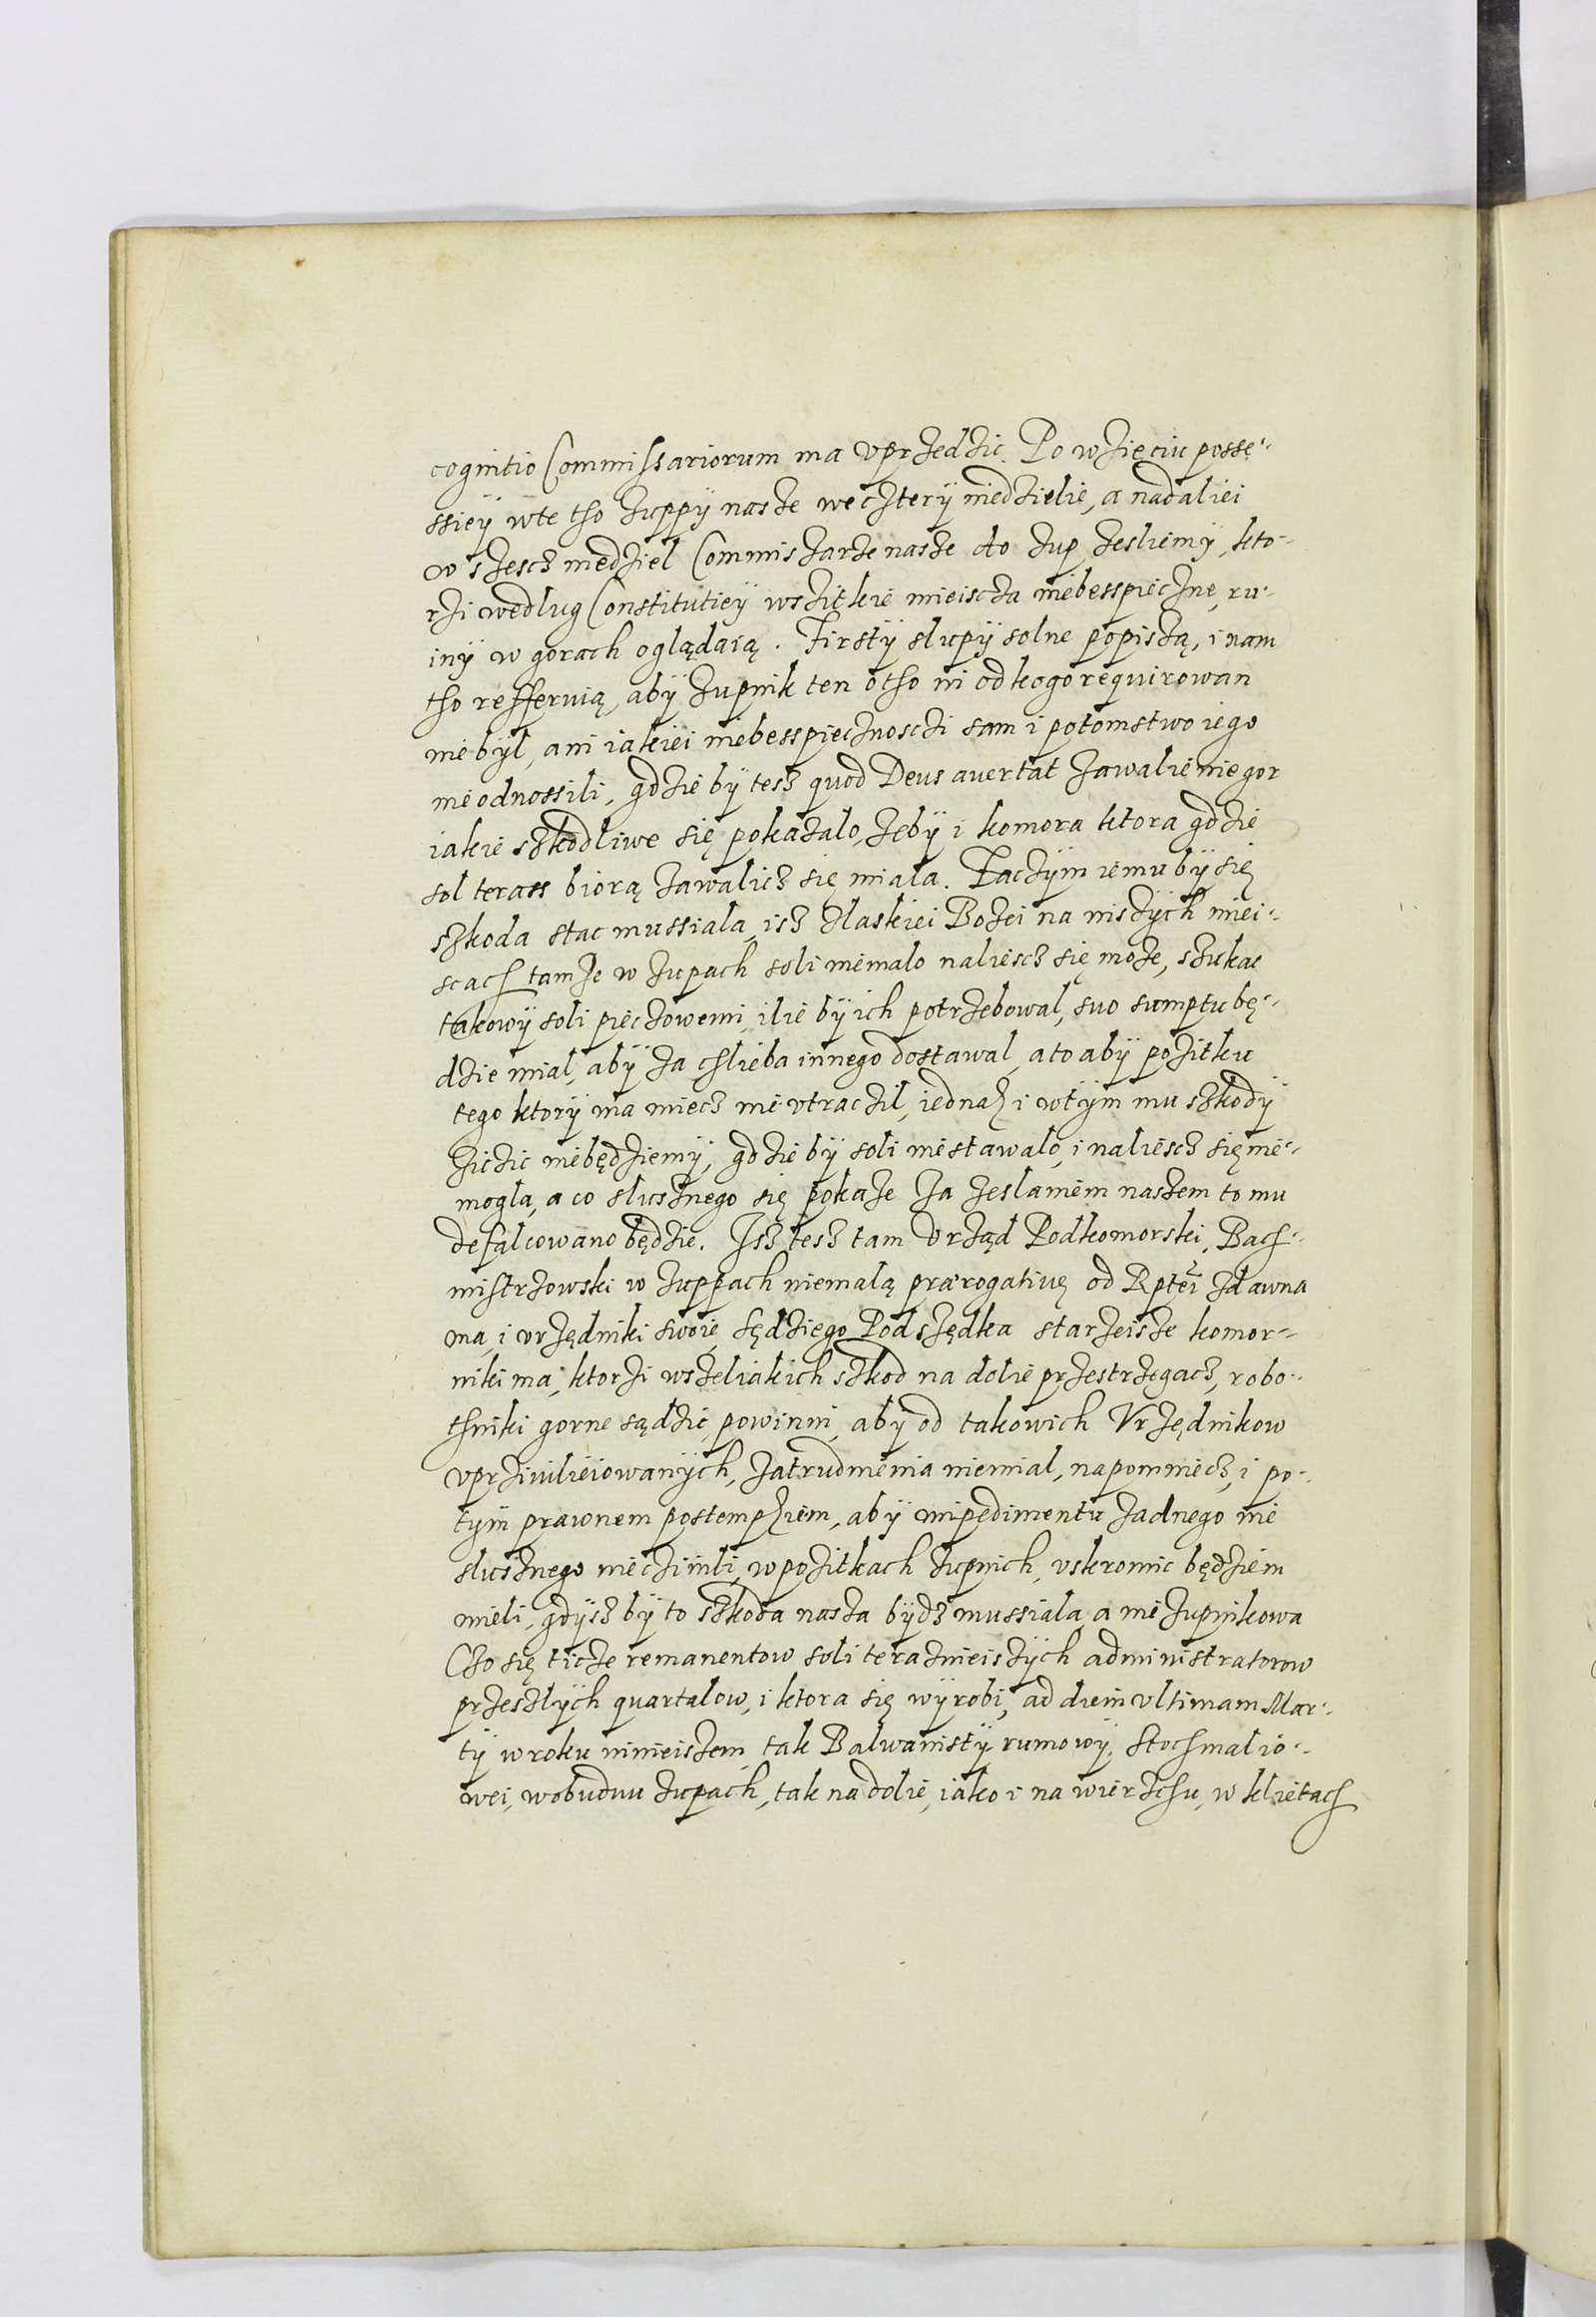 cognitio Commissariorum ma vprzedzic. Po wzięciu possę-
ssiey wte tho zuppÿ nasze wecztery niedzielie, a nadaliei
w szescz niedziel Commiszarze nasze do zup zesliemÿ, kto-
rzi wedlug Constitutieÿ wszitkie mieiscza niebesspieczne, ru-
inÿ w gorach oglądaią. Firstÿ slupÿ solne popiszą, i nam
tho refferuią, abÿ zupnik ten otho ni odkogo requirowan
niebÿl, ani iakiei niebesspiecznosczi sam i potomstwo iego
nieodnossili, gdzie bÿ tesz quod Deus auertat zawalienie gor
iakie szkodliwe się pokazalo, zebÿ i komora ktora gdzie
sol terass biorą zawalicz się miala. Zaczÿm iemu bÿ się
szkoda stac mussiala, isz zlaskiei Bozei na niszÿch miei-
scach tamze w zupach soli niemalo naliescz się moze, szukac
takowÿ soli pieczowemi, ilie bÿ ich potrzebowal, suo sumptu bę-
dzie mial, abÿ za chlieba innego dostawal, ato abÿ pozitku
tego ktorÿ ma miecz nie vtraczil, iednak i wtÿm mu szkodÿ
ziczic niebędziemÿ, gdzie bÿ soli niestawalo, i naliescz się nie-
mogla, a co slusznego się pokaze za zeslaniem naszem to mu
defalcowano będzie. Isz tesz tam Vrząd Podkomorski, Bach-
mistrzowski w zuppach niemalą praerogatiuę od Rptei zdawna
ma, i vrzędniki swoie, sędziego Podszędka starzeisze komor-
niki ma, ktorzi wszeliakich szkod na dolie przestrzegacz, robo-
thniki gorne sądzic, powinni, aby od takowich Vrzędnikow
vprziuilieiowanÿch, zatrudnienia niemial, napomniecz, i po-
tÿm prawnem postempkiem, abÿ impedimentu zadnego nie
slusznego nieczinili, wpozitkach zupnich, vskromic będziem
mieli, gdÿsz bÿ to szkoda nasza bÿdz mussiala, a nie zupnikowa
Czo się ticze remanentow soli terazneiszÿch administratorow
przeszlÿch quartalow, i ktora się wÿrobi, ad diem vltimam Mar-
tÿ w roku ninieiszem, tak Balwanistÿ rumowÿ, stochmalio-
wei, wobuduu zupach, tak na dolie, iako i na wierzchu, w klietach